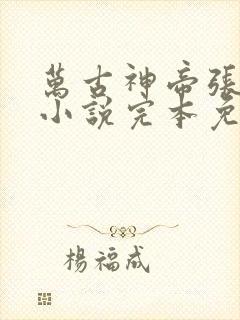 萬古神帝張
小說完本免
楊福成